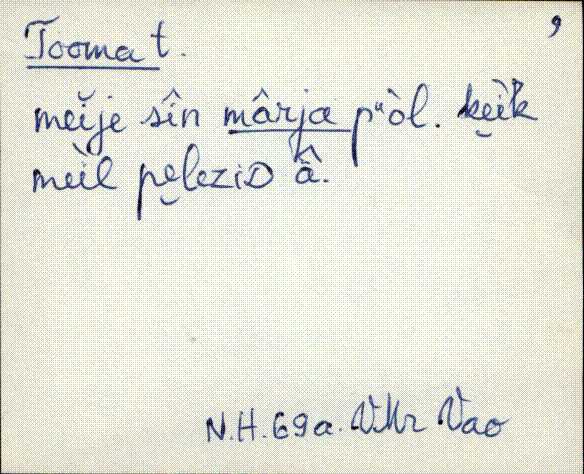 Tooma t.
meĭje sîn mârja pᵘòl. ke̬ìk
meìl pe̬leziD â.
N.H. 69a. VMr Vao